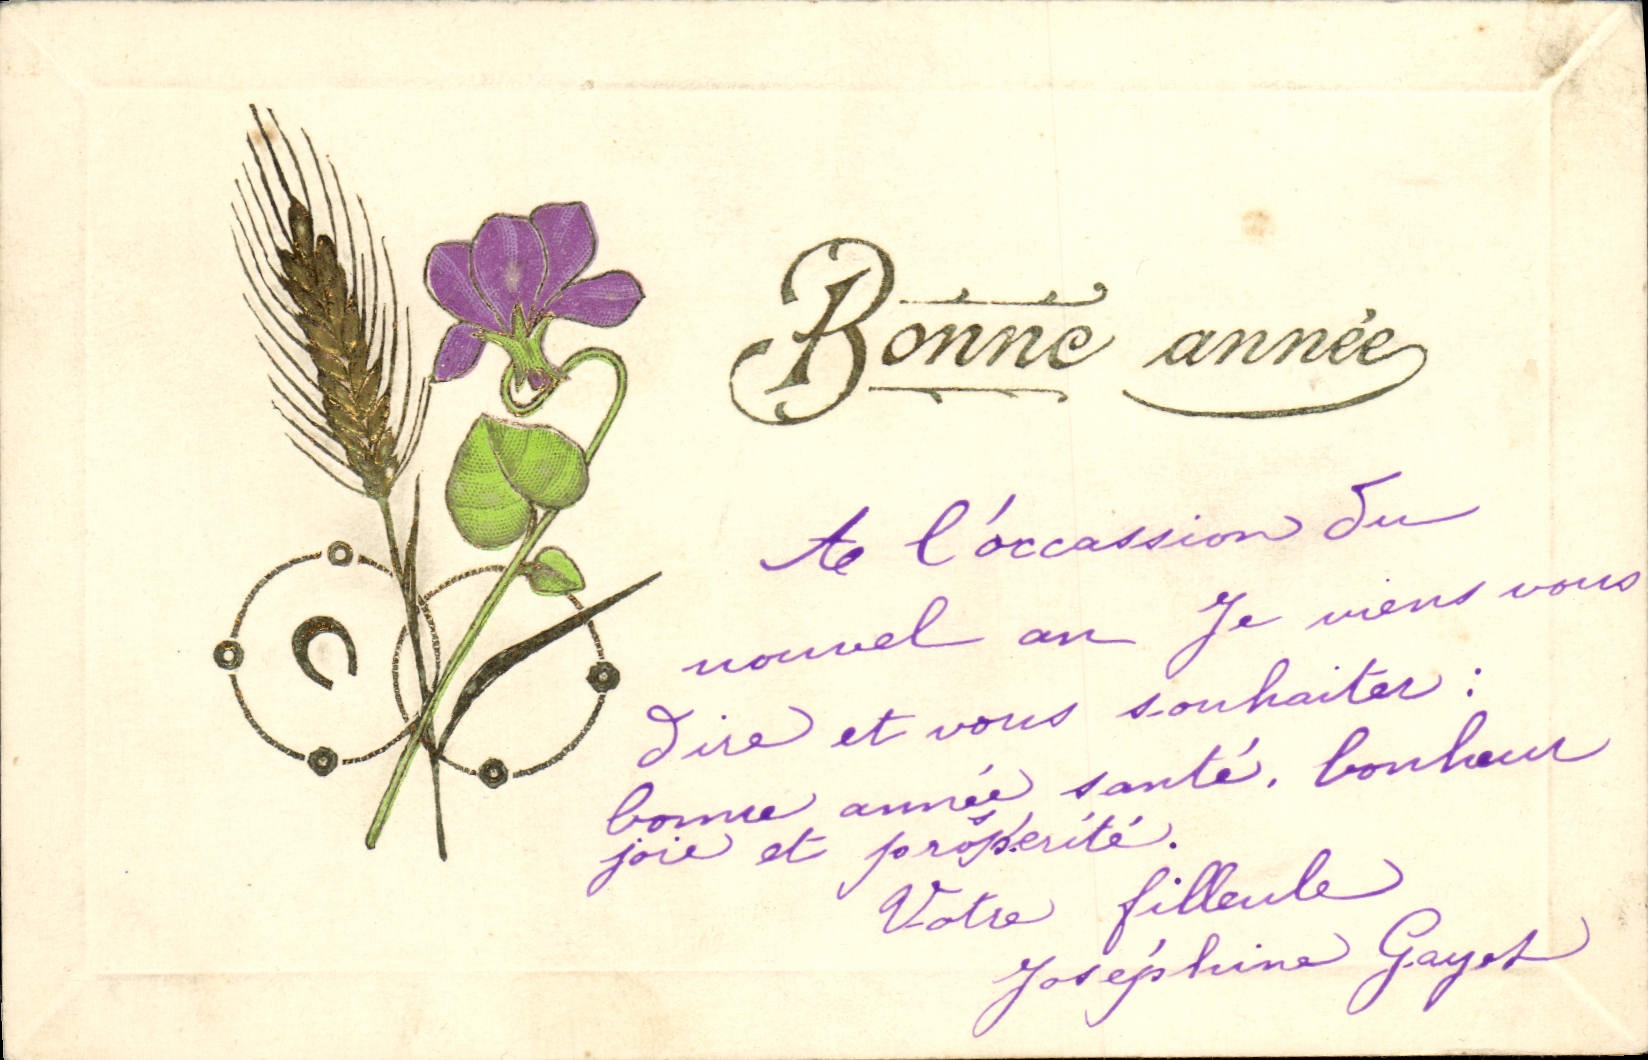 Bonne année
A l'occassion du
nouvel an Je viens vous
dire et vous souhaiter :
bonne année santé, bonheur
joie et prospérité.
Votre filleule
Joséphine Gayet